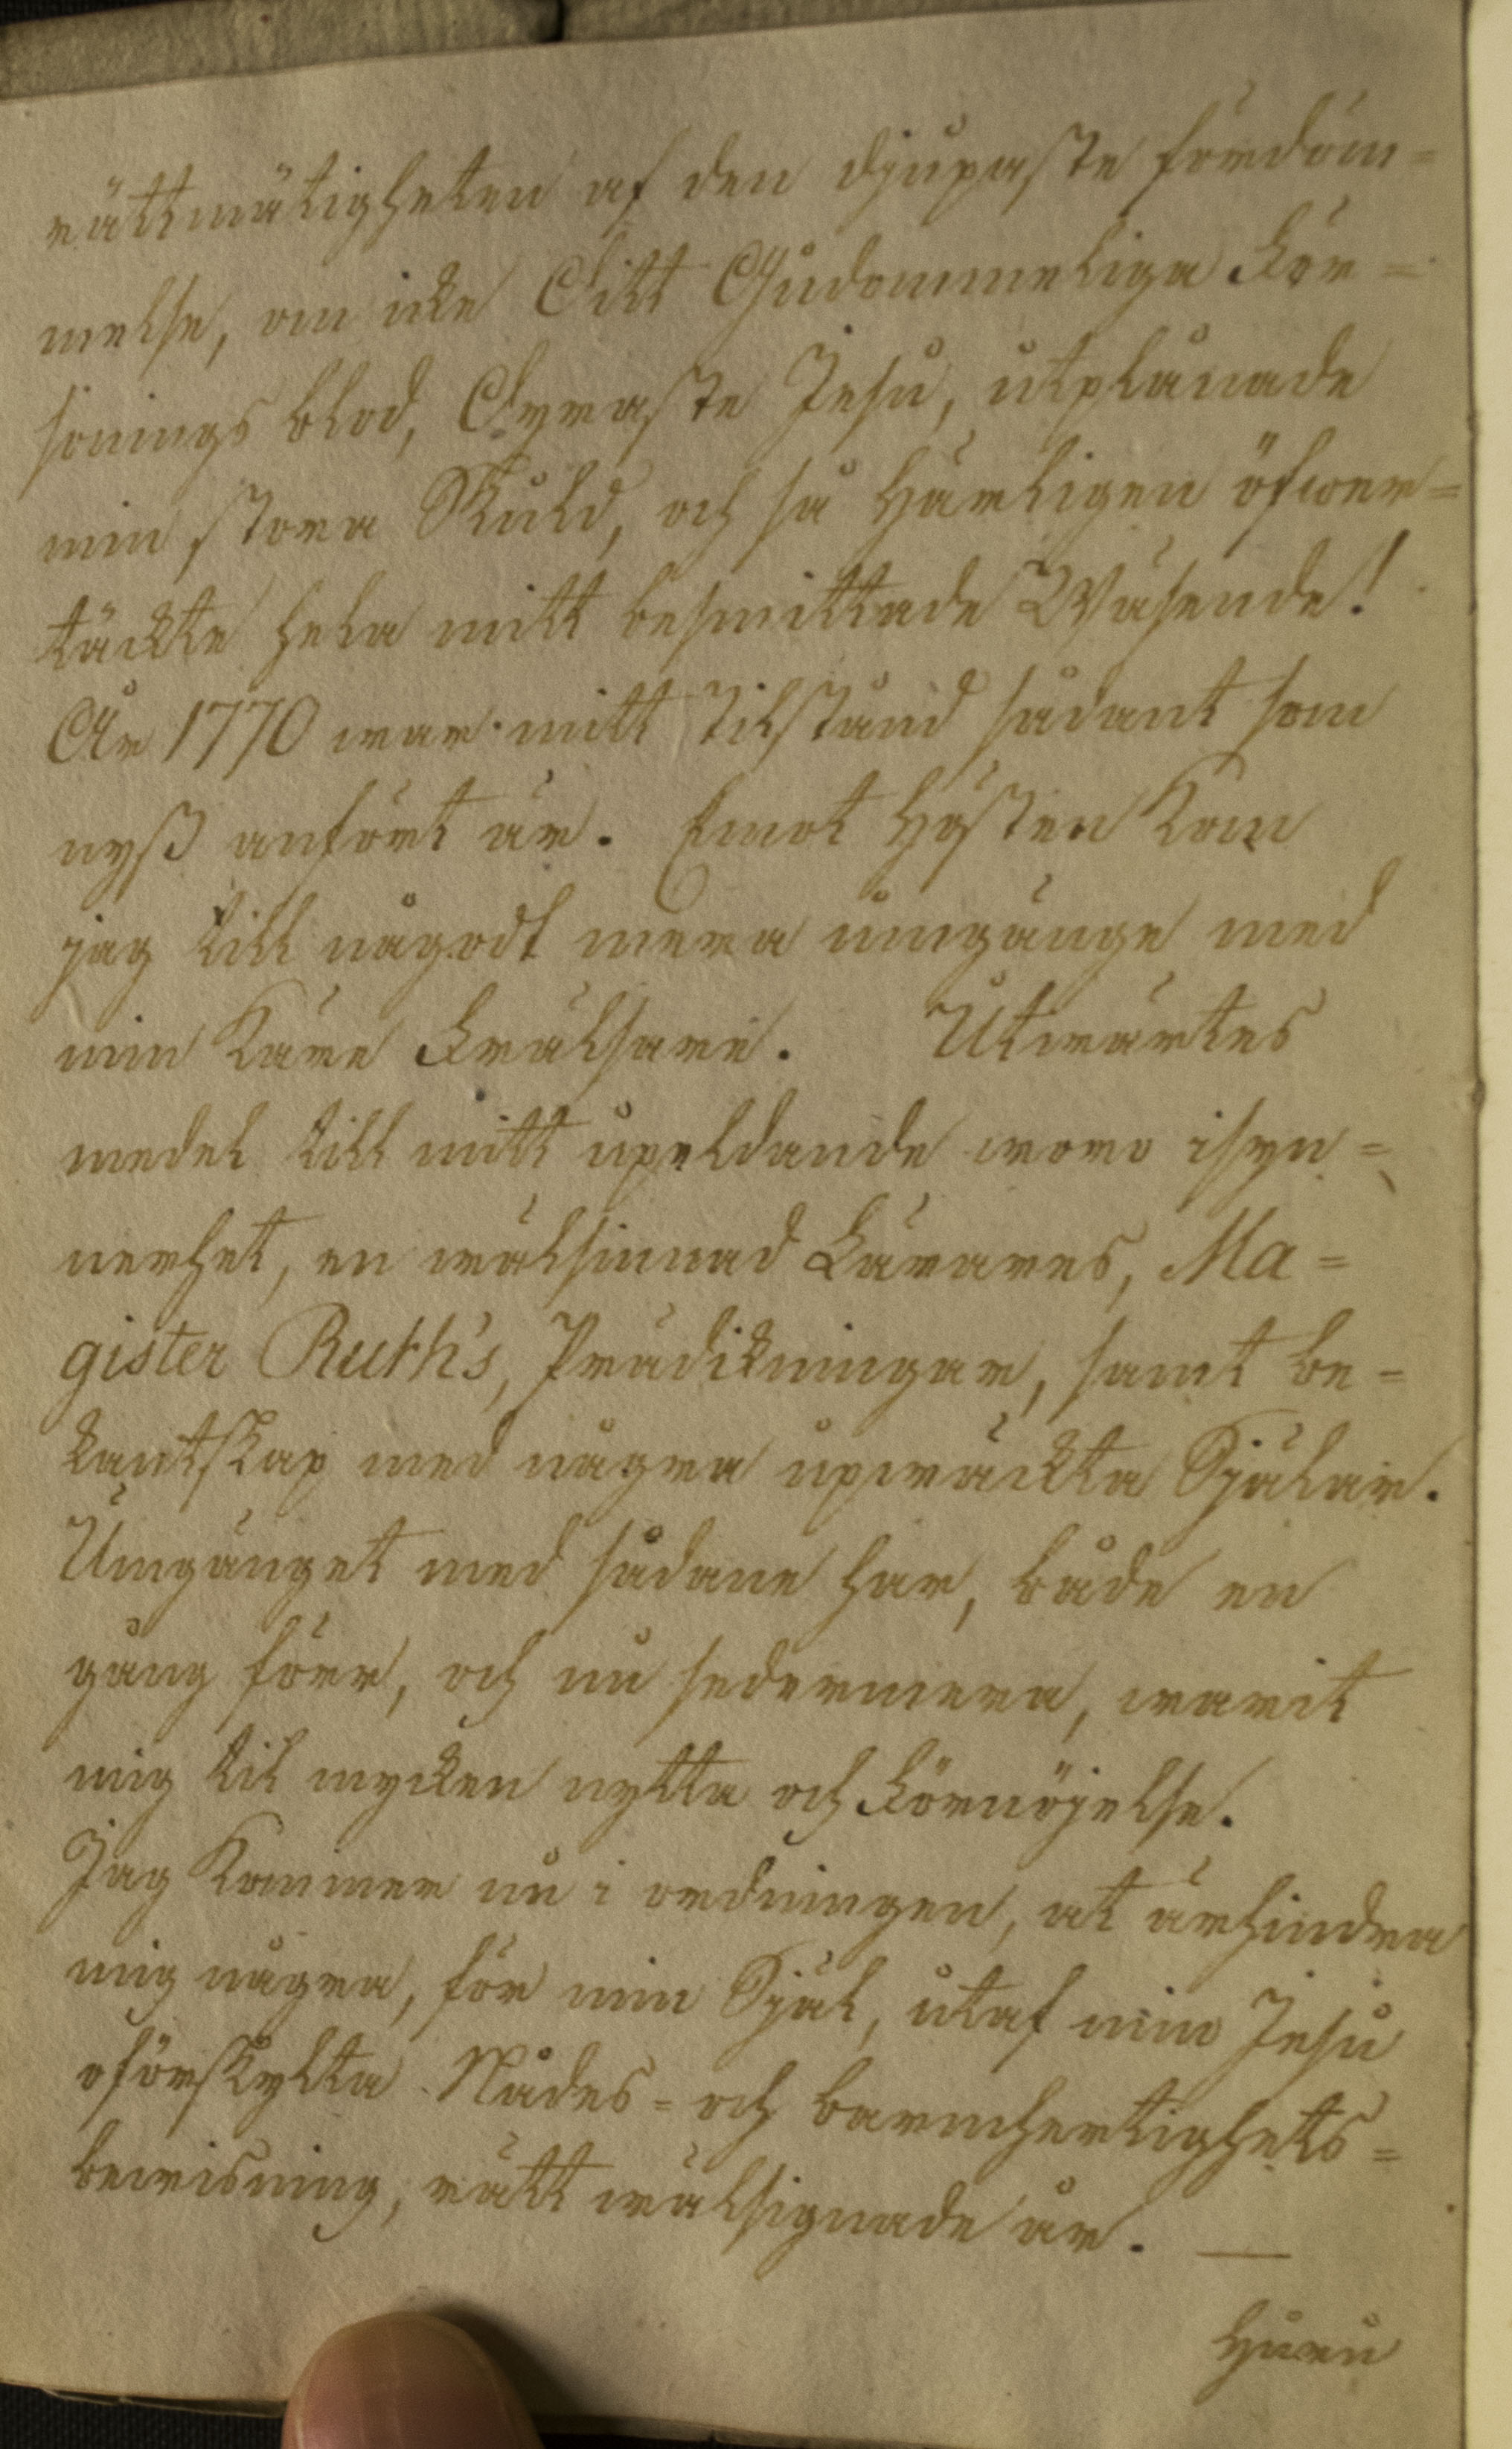 rättmätigheten af den djupaste fördöm=
melse, om icke Ditt Gudommeliga För=
sonings blod, Dyraste Jesu, utplånade
min stora Skuld, och så härligen öfwer=
täckte hela mitt besmittade Wäsende!
År 1770 war mitt Tilstånd sådant som
nyß anfört är. Emot Hösten kom
jag till någodt mera umgänge med
min Käre Frälsare. Utwärtes
medel till mitt upeldande woro isyn=
nerhet, en wälsinnad Lärares, Ma=
gister Ruth's, Prädikningar, samt be=
kantskap med några upwäckta Själar.
Umgänget med sådane har, både en
gång förr, och nu sedermera, warit
mig til mycken nytta och Förnöjelse.
Jag kommer nu i ordningen, at ärhindra
mig några, för min Själ, utaf min Jesu
oförskylta Nådes= och barmhertighets=
bewisning, rätt wälsignade år. —
Huru